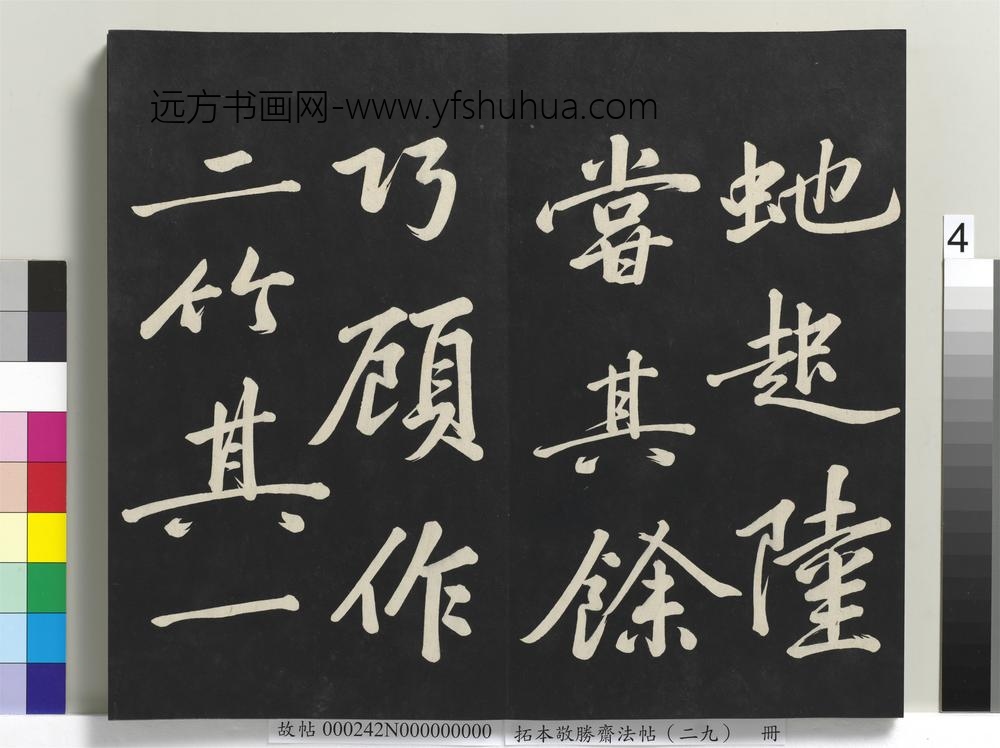 远方书画网-www.yfshuhua.com
虵起陸
嘗其餘
巧顧作
二竹其一
4
故帖 000242N000000000
拓本敬勝齋法帖（二九） 冊